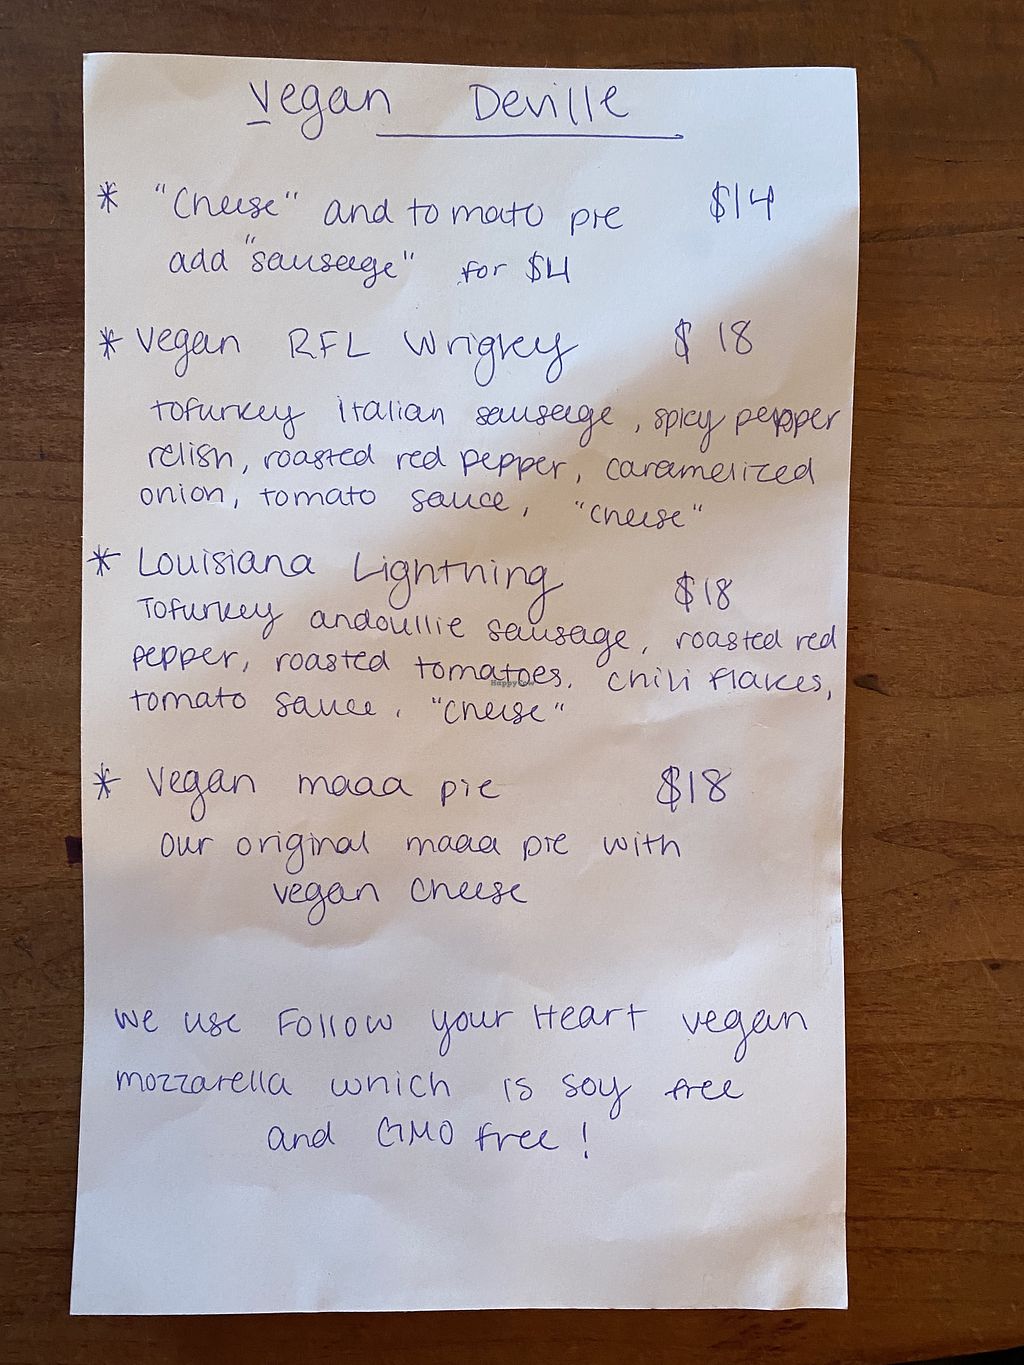 Vegan Deville
* "Cheese" and tomato pie $14
add "sausage" for $4
* Vegan RFL Wrigley $18
Tofurkey Italian sausage, spicy pepper
relish, roasted red pepper, caramelized
onion, tomato sauce, "cheese"
* Louisiana Lightning $18
Tofurkey andoullie sausage, roasted red
pepper, roasted tomatoes, chili flakes,
tomato sauce, "cheese"
* Vegan maaa pie $18
our original maaa pie with
vegan cheese
We use Follow your Heart vegan
mozzarella which is soy free
and GMO free!
HappyCow